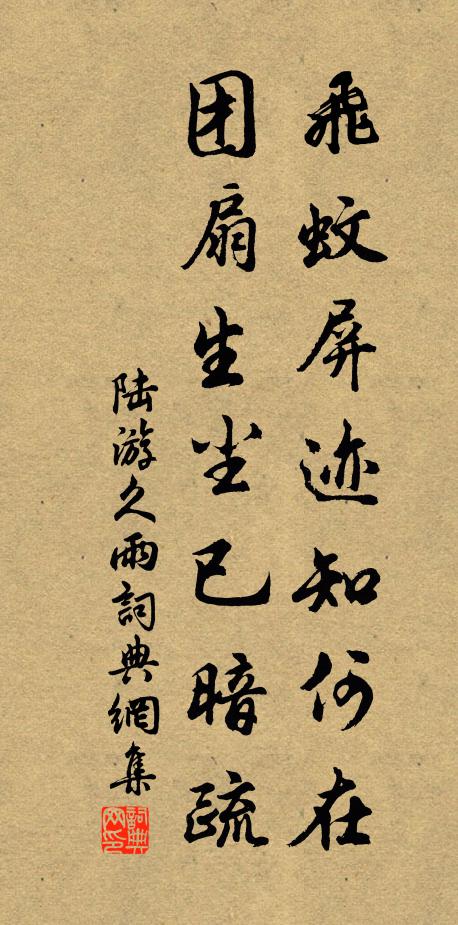 飛蚊屏迹知何在
团扇生尘已暗疏
陆游久雨詞典網集
詞典網印